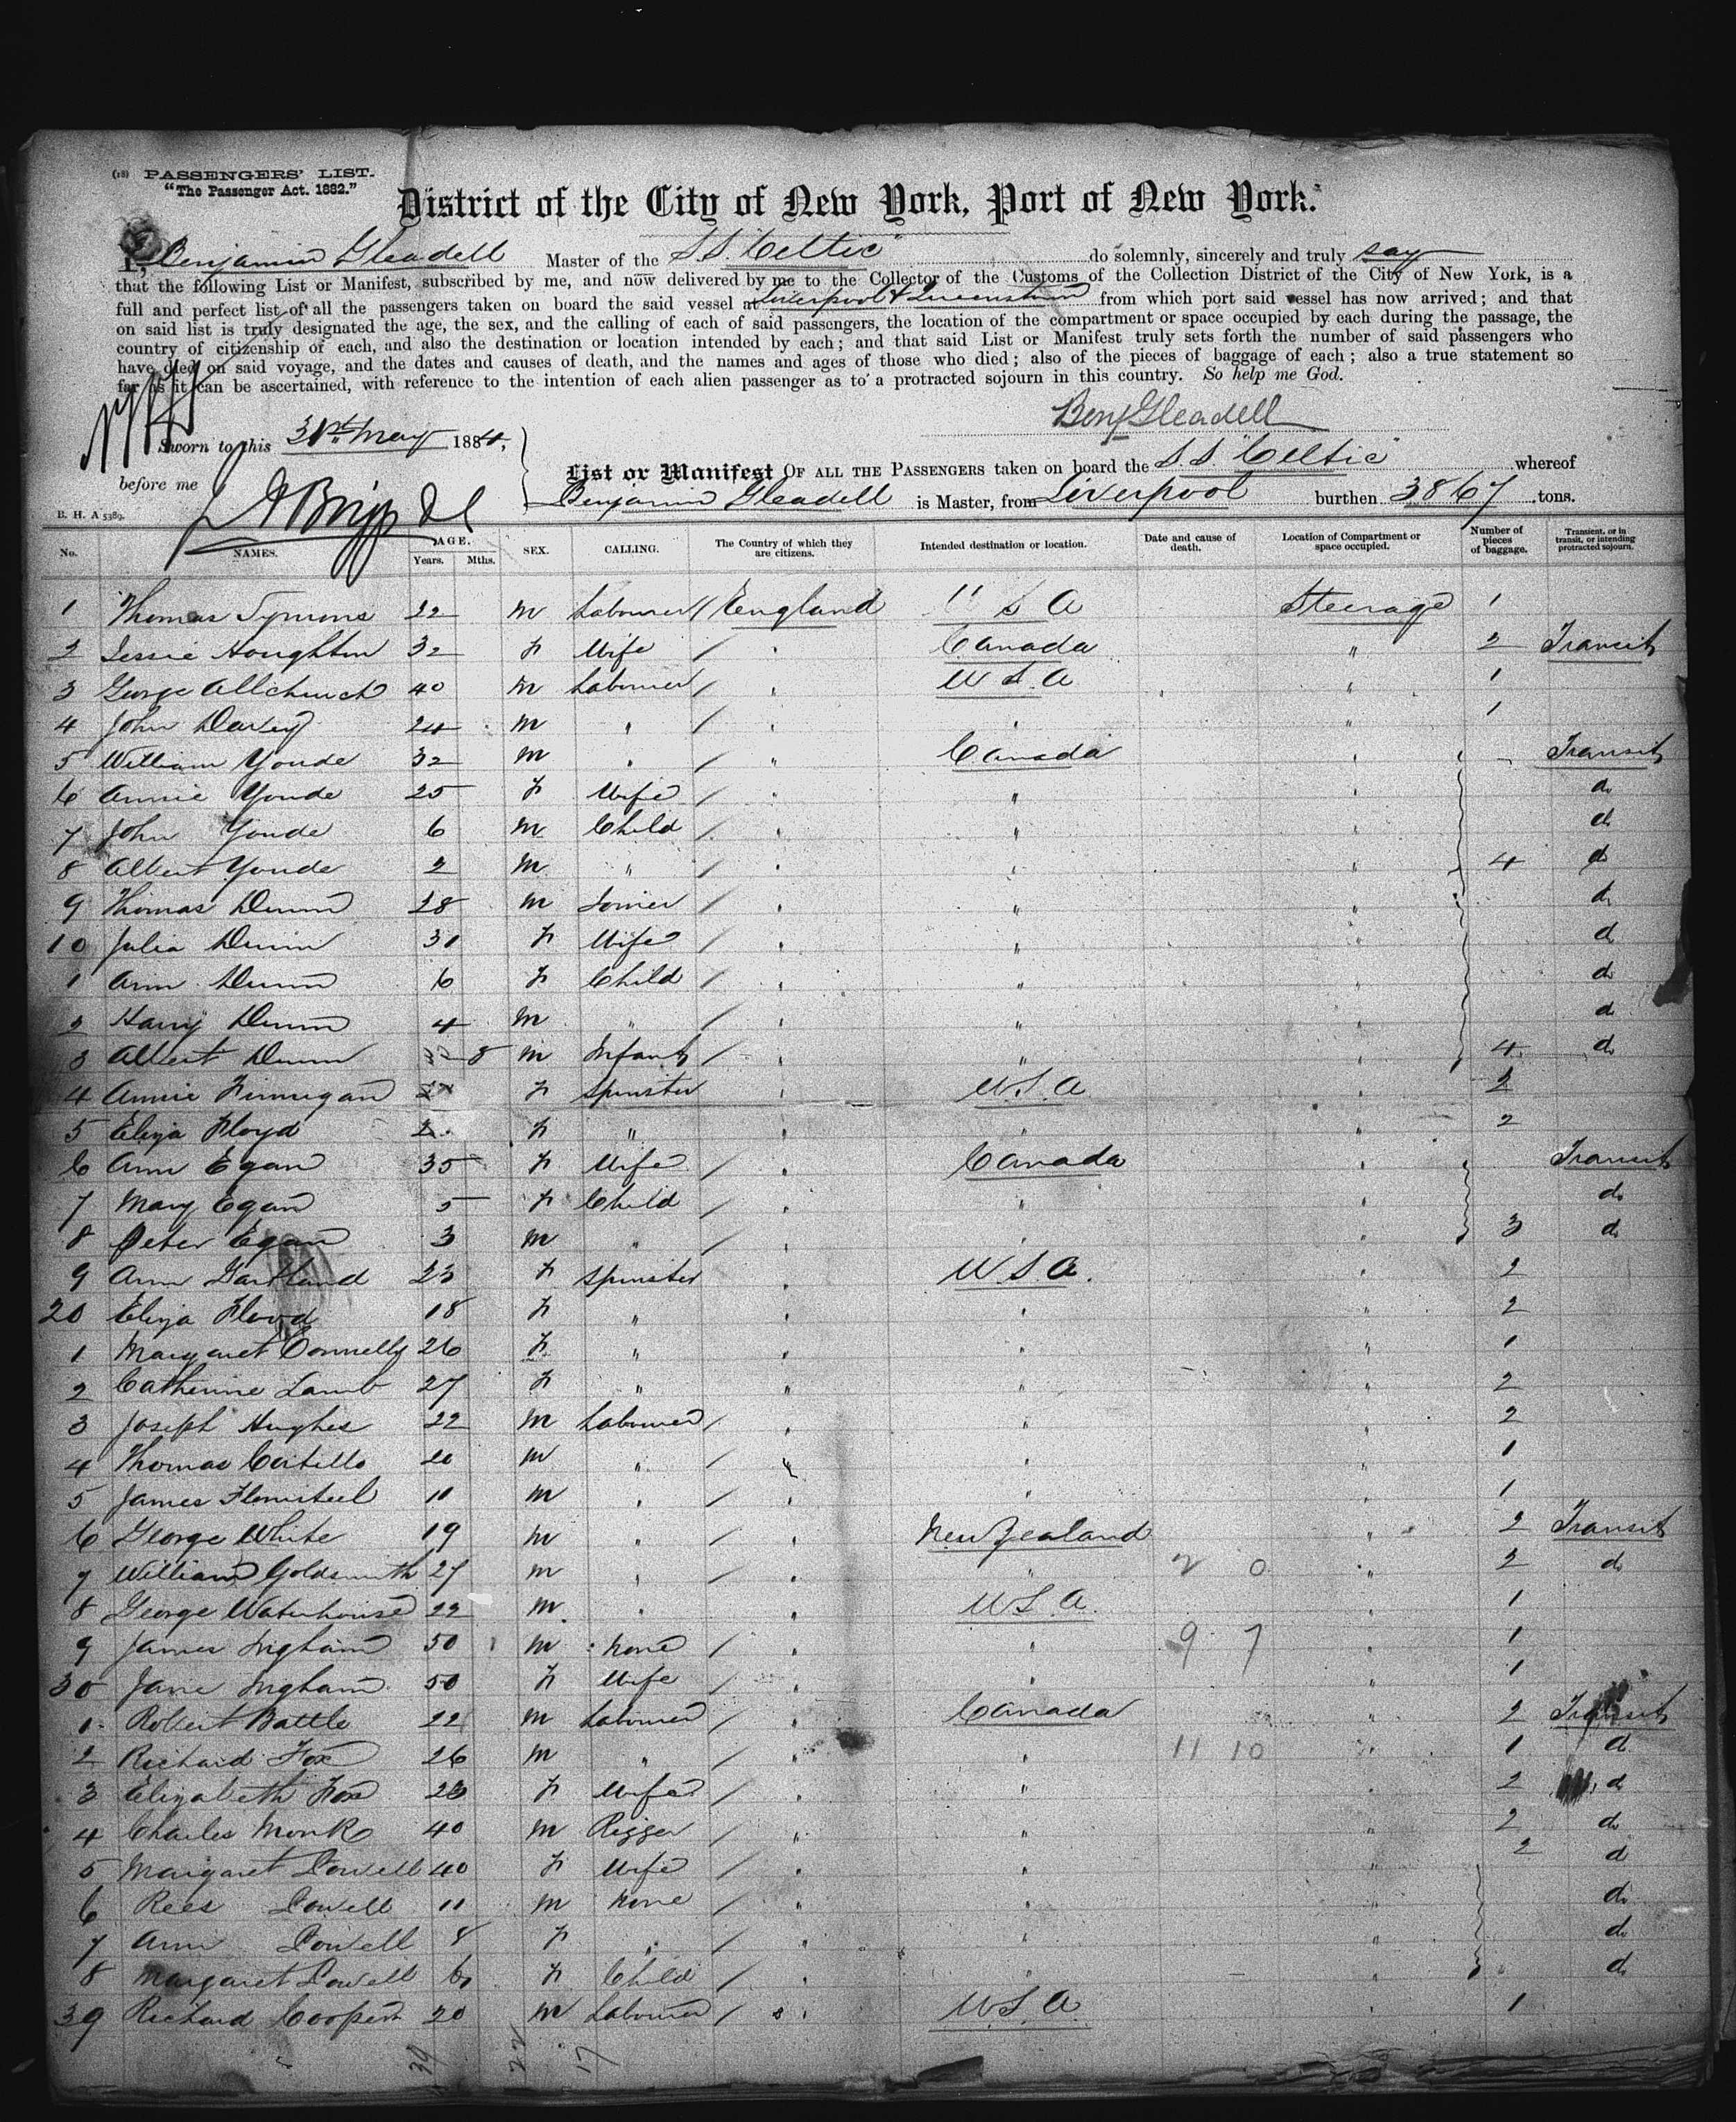 (18) PASSENGERS' LIST.
"The Passenger Act. 1882."
District of the City of New York, Port of New York.
I, Benjamin Gleadell Master of the S.S. "Celtic" do solemnly, sincerely and truly say
that the following List or Manifest, subscribed by me, and now delivered by me to the Collector of the Customs of the Collection District of the City of New York, is a
full and perfect list of all the passengers taken on board the said vessel at Liverpool & Queenstown from which port said vessel has now arrived; and that
on said list is truly designated the age, the sex, and the calling of each of said passengers, the location of the compartment or space occupied by each during the passage, the
country of citizenship of each, and also the destination or location intended by each; and that said List or Manifest truly sets forth the number of said passengers who
have died on said voyage, and the dates and causes of death, and the names and ages of those who died; also of the pieces of baggage of each; also a true statement so
far as it can be ascertained, with reference to the intention of each alien passenger as to a protracted sojourn in this country. So help me God.
Benj Gleadell
Sworn to this 31st May 1884,
before me
List or Manifest OF ALL THE PASSENGERS taken on board the S.S. "Celtic" whereof
Benjamin Gleadell is Master, from Liverpool burthen 3867 tons.
B. H. A 5389.
No. NAMES. AGE. Years. Mths. SEX. CALLING. The Country of which they are citizens. Intended destination or location. Date and cause of death. Location of Compartment or space occupied. Number of pieces of baggage. Transient, or in transit, or intending protracted sojourn.
1 Thomas Symons 22 m Labourer / England U S A Steerage 1
2 Jessie Houghton 32 F Wife / " Canada " 2 Transit
3 George Allchurch 40 m Labourer / " U S A " 1
4 John Davey 24 m " / " " " 1
5 William Youde 32 m " / " Canada " Transit
6 Annie Youde 25 F Wife / " " " do
7 John Youde 6 m Child / " " " do
8 Albert Youde 2 m " / " " " 4 do
9 Thomas Dunn 28 m Joiner / " " " do
10 Julia Dunn 31 F Wife / " " " do
1 Ann Dunn 6 F Child / " " " do
2 Harry Dunn 4 m " / " " " do
3 Albert Dunn 8 m Infant / " " " 4 do
4 Annie Finnegan F Spinster " U.S.A " 2
5 Eliza Floyd F " " " " 2
6 Ann Egan 35 F Wife / " Canada " Transit
7 Mary Egan 5 F Child / " " " do
8 Peter Egan 3 m " / " " " 3 do
9 Ann Gartland 23 F Spinster " U.S.A. " 2
20 Eliza Flood 18 F " " " " 2
1 Margaret Connelly 26 F " " " " 1
2 Catherine Lamb 27 F " " " " 2
3 Joseph Hughes 22 m Labourer / " " " 2
4 Thomas Costello 20 m " / " " " 1
5 James 11 m " / " " " 1
6 George White 19 m " / " New Zealand " 2 Transit
7 William Goldsmith 27 m " / " " 2 0 " 2 do
8 George Waterhouse 22 m " / " U S A. " 1
9 James Ingham 50 m none / " " 9 7 " 1
30 Jane Ingham 50 F Wife / " " " 1
1 Robert Battle 22 m Labourer / " Canada " 2 Transit
2 Richard Fox 26 m " / " " 11 10 " 1 do
3 Elizabeth Fox 23 F Wife / " " " 2 do
4 Charles Monk 40 m Rigger / " " " 2 do
5 Margaret Powell 40 F Wife / " " " 2 do
6 Rees Powell 11 m none / " " " do
7 Ann Powell 8 F " / " " " do
8 Margaret Powell 6 F Child / " " " do
39 Richard Cooper 20 m Labourer / " U.S.A " 1
39 22 17